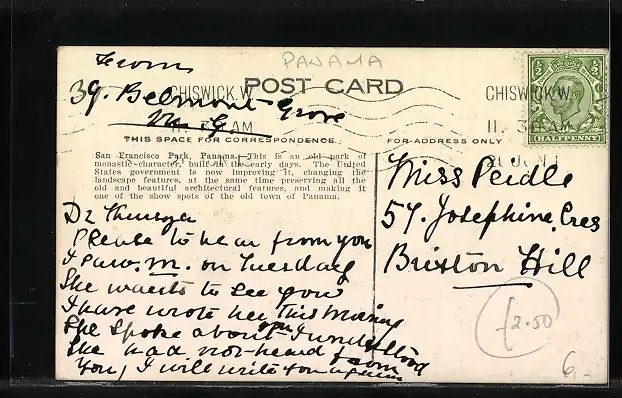 PANAMA
From
39. Belmont Grove
POST CARD
CHISWICK.W.
CHISWICK.W
11. 30 AM
11. 30 AM
HALFPENNY
THIS SPACE FOR CORRESPONDENCE.
FOR ADDRESS ONLY
San Francisco Park, Panama.—This is an old park of
monastic character, built in the early days. The United
States government is now improving it, changing the
landscape features, at the same time preserving all the
old and beautiful architectural features, and making it
one of the show spots of the old town of Panama.
Miss Peidle
57. Josephine Cres
Brixton Hill
Dr
Please to hear from you
I saw. M. on Tuesday
She wants to see you
I have wrote her this Morning
She spoke about you I understood
She had not heard from
you, I will write you again
£2.50
6.-